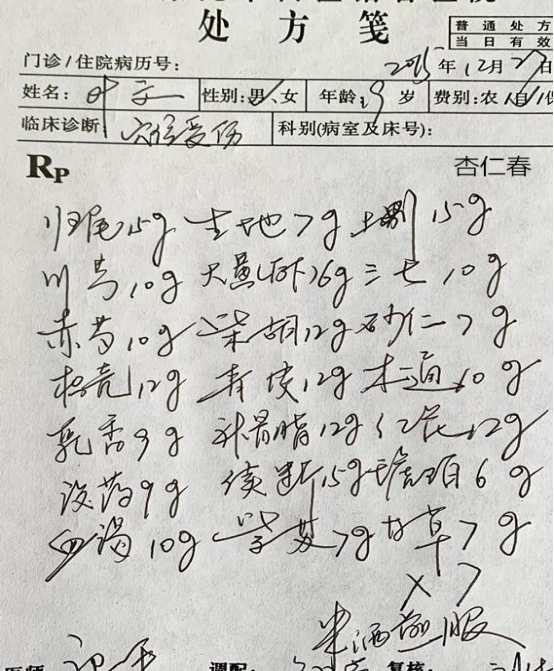 处方笺
普通处方
当日有效
门诊/住院病历号: 年12月27日
姓名: 性别:男、女 年龄:19岁 费别:农/自/
临床诊断 穴位受伤 科别(病室及床号):
RP 杏仁春
归尾15g 生地7g 土别15g
川芎10g 大黄(后下)6g 三七10g
赤芍10g 柴胡12g 砂仁7g
枳壳12g 青皮12g 木通10g
乳香9g 补骨脂12g 红花12g
没药9g 续断15g 琥珀6g
血竭10g 紫苏7g 甘草7g
×7
米酒煎服
医师 调配: 复核: